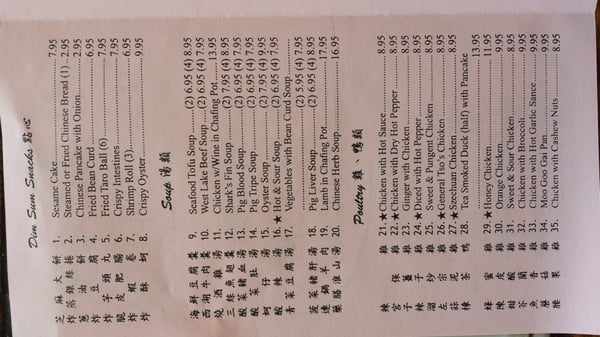 Dim Sum Snacks 點心
芝麻大餅 1. Sesame Cake 7.95
蒸銀絲捲 2. Steamed or Fried Chinese Bread (1) 2.95
蔥油餅 3. Chinese Pancake with Onion 2.95
炸豆腐 4. Fried Bean Curd 6.95
炸芋頭丸 5. Fried Taro Ball (6) 7.95
脆皮肥腸 6. Crispy Intestines 7.95
炸蝦卷 7. Shrimp Roll (3) 6.95
炸酥蚵 8. Crispy Oyster 9.95
Soup 湯類
海鮮豆腐羹 9. Seafood Tofu Soup (2) 6.95 (4) 8.95
西湖牛肉羹 10. West Lake Beef Soup (2) 6.95 (4) 7.95
燒酒雞湯 11. Chicken w/Wine in Chafing Pot 13.95
三絲魚翅羹 12. Shark's Fin Soup (2) 7.95 (4) 8.95
酸菜豬血湯 13. Pig Blood Soup (2) 6.95 (4) 7.95
酸菜肚湯 14. Pig Tripe Soup (2) 6.95 (4) 7.95
蚵仔湯 15. Oyster Soup (2) 7.95 (4) 9.95
酸辣湯 16. ★ Hot & Sour Soup (2) 6.95 (4) 7.95
青菜豆腐湯 17. Vegetables with Bean Curd Soup
(2) 5.95 (4) 7.95
菠菜豬肝湯 18. Pig Liver Soup (2) 6.95 (4) 7.95
羊肉 19. Lamb in Chafing Pot 17.95
藥膳淮山湯 20. Chinese Herb Soup 16.95
Poultry 雞、鴨類
辣雞 21. ★ Chicken with Hot Sauce 8.95
宮保雞 22. ★ Chicken with Dry Hot Pepper 8.95
子薑雞 23. Ginger Chicken 8.95
辣子雞 24. ★ Diced with Hot Pepper 8.95
溜炒雞 25. Sweet & Pungent Chicken 8.95
左宗雞 26. ★ General Tso's Chicken 8.95
蒜泥雞 27. ★ Szechuan Chicken 8.95
樟茶鴨 28. Tea Smoked Duck (half) with Pancake
13.95
蜂蜜雞 29. ★ Honey Chicken 11.95
陳皮雞 30. Orange Chicken 9.95
甜酸雞 31. Sweet & Sour Chicken 8.95
芥蘭雞 32. Chicken with Broccoli 8.95
魚香雞 33. Chicken with Hot Garlic Sauce 8.95
蘑菇雞 34. Moo Goo Gai Pan 9.95
腰果雞 35. Chicken with Cashew Nuts 8.95